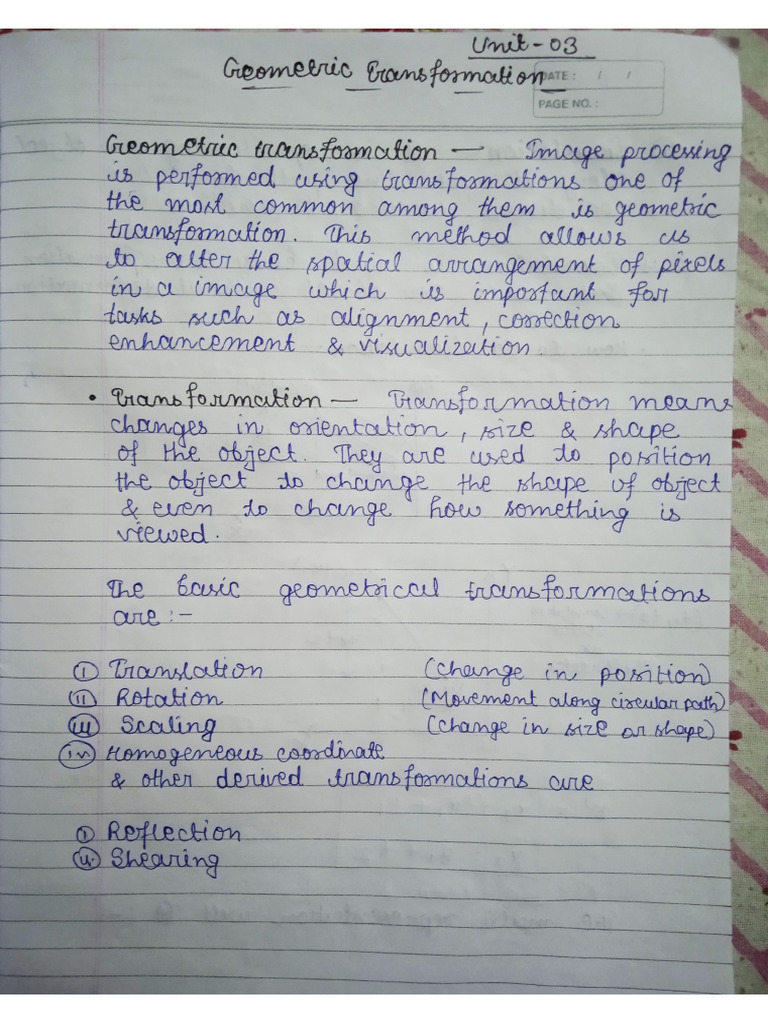 Unit-03
Geometric Transformation
DATE: / /
PAGE NO.:
Geometric transformation — Image processing
is performed using transformations one of
the most common among them is geometric
transformation. This method allows us
to alter the spatial arrangement of pixels
in a image which is important for
tasks such as alignment, correction
enhancement & visualization.
• Transformation — Transformation means
changes in orientation, size & shape
of the object. They are used to position
the object to change the shape of object
& even to change how something is
viewed.
The basic geometrical transformations
are :-
(i) Translation (Change in position)
(ii) Rotation (Movement along circular path)
(iii) Scaling (Change in size or shape)
(iv) Homogeneous coordinate
& other derived transformations are
(i) Reflection
(ii) Shearing